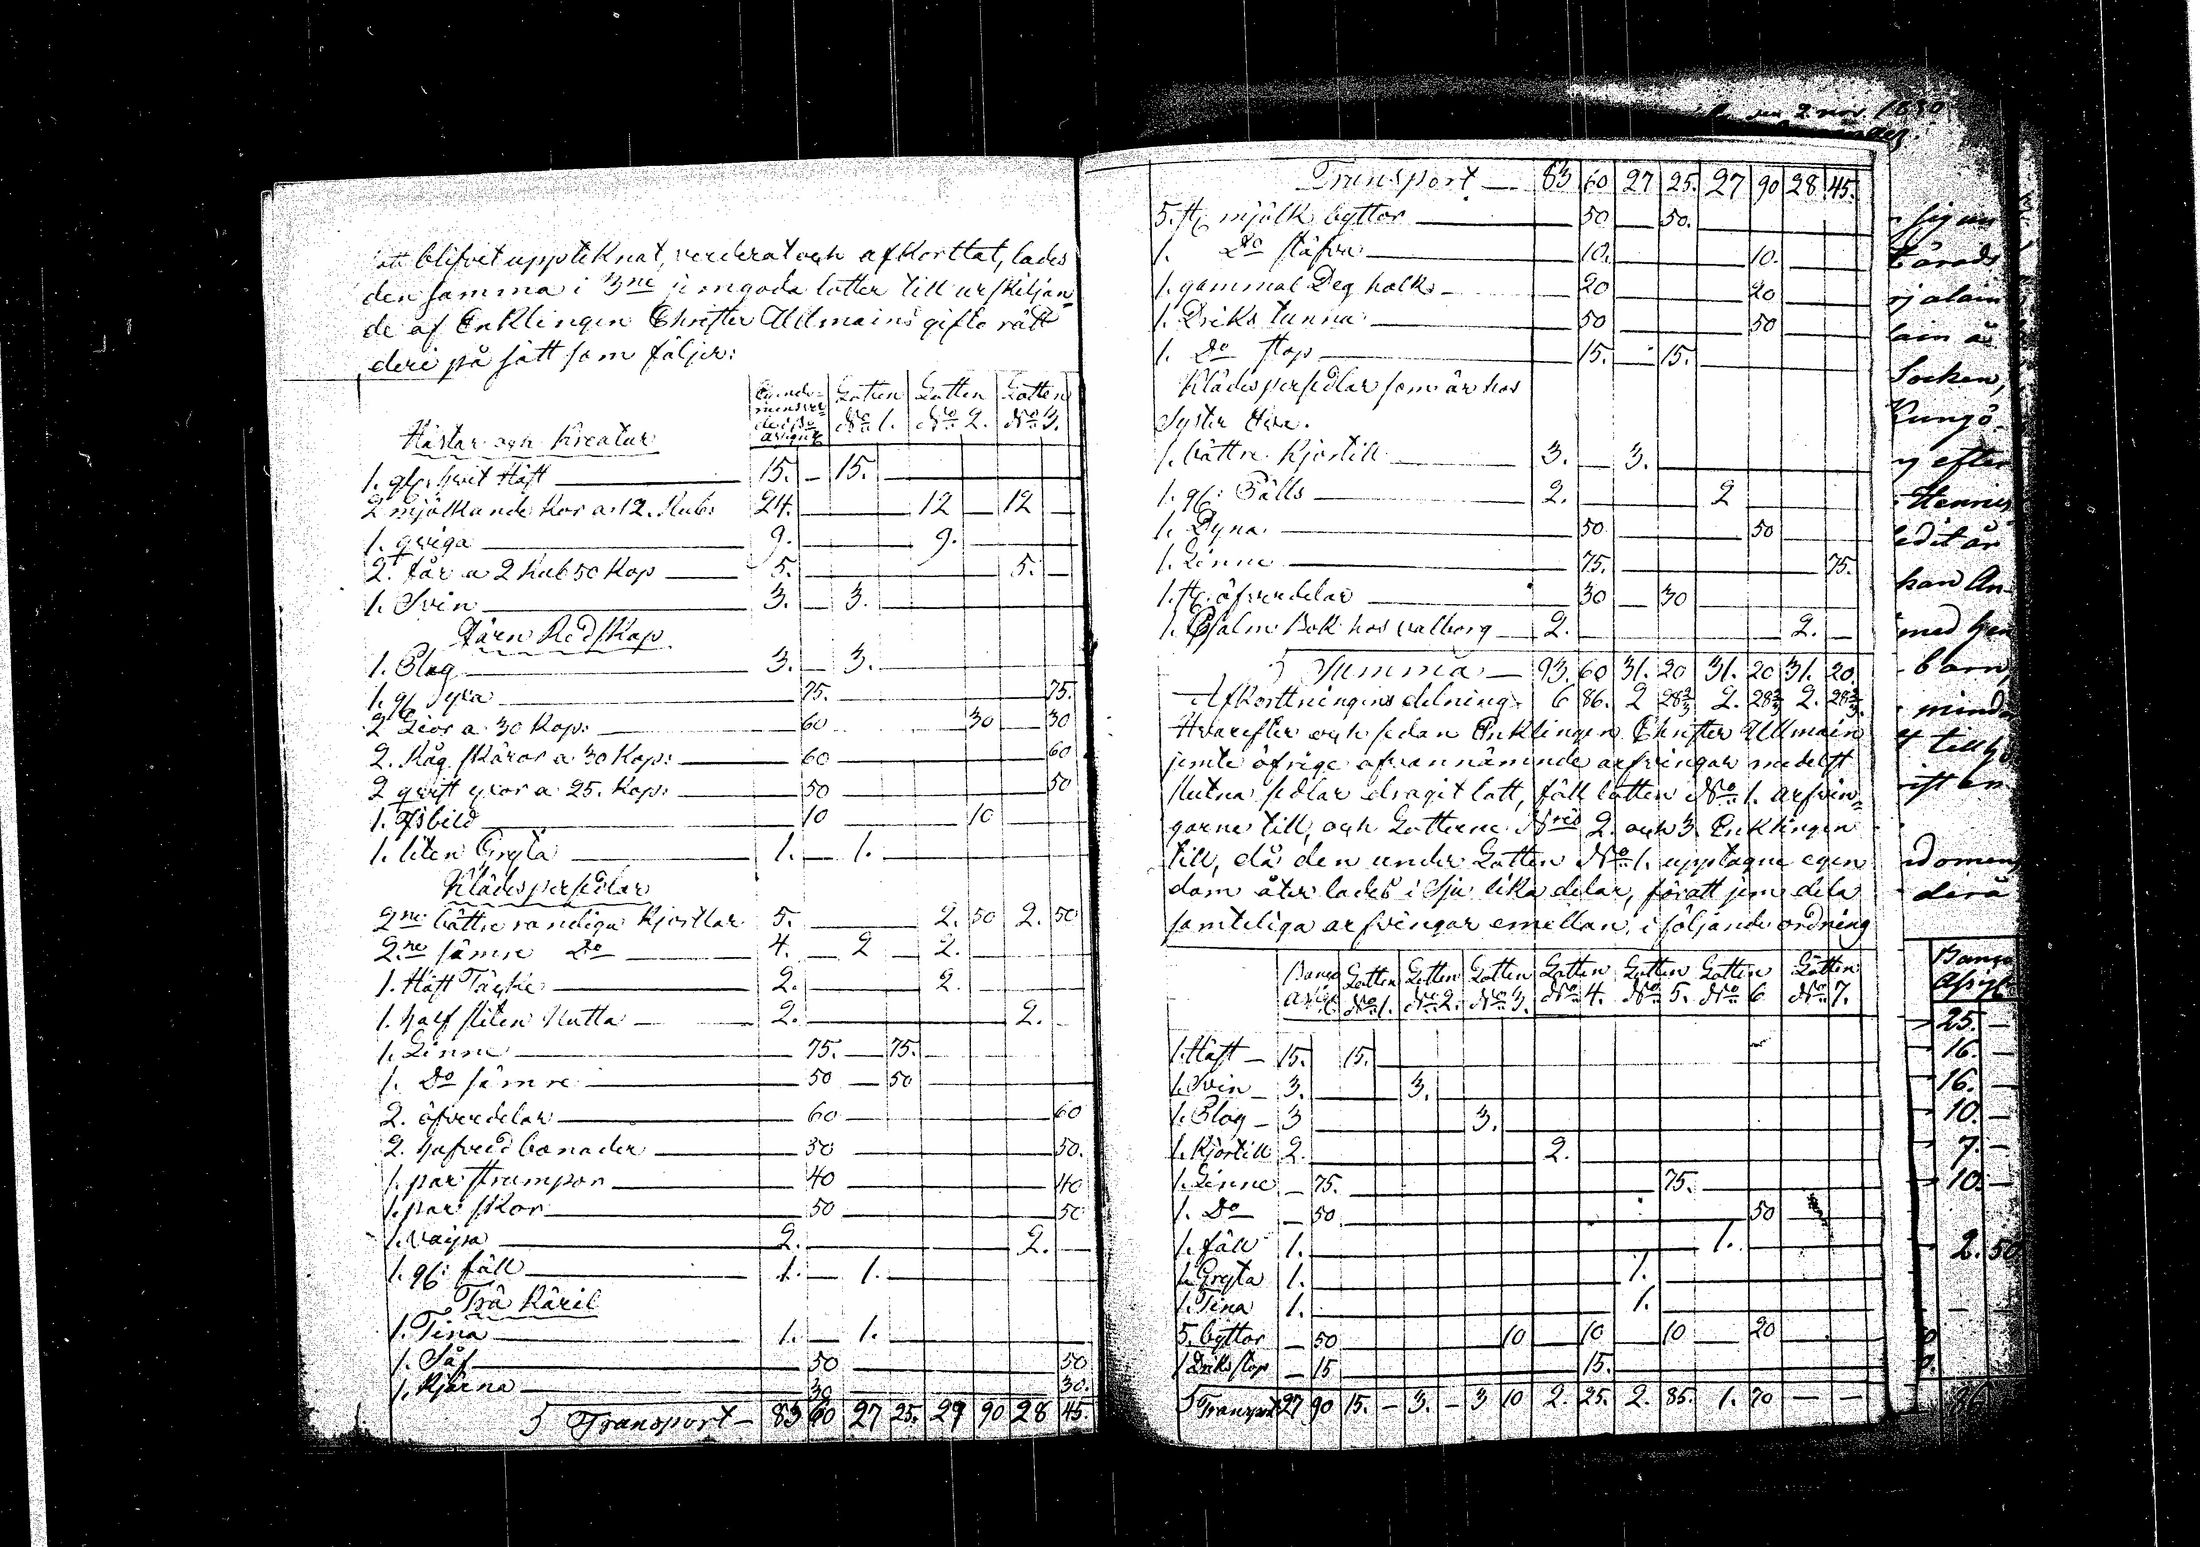 att blifvit upptéknat, verderat och afkorttat, lades
den samma i 3ne jemgoda lotter till urskiljan=
de af Enklingen Christer Ullmains gifto rätt
deri på sätt som följer:
Lotten No 1. Lotten No 2. Lotten No 3.
Hästar och Kreatur
1. gl. hvit Häst — 15. — 15.
2 mjölkande Kor a 12. Rub: 24. — 12 — 12 —
1. qviga — 9. — 9. —
2. Får a 2 Rub 50 Kop — 5. — 5. —
1. Svin — 3. — 3. —
Järn Redskap
1. Plog — 3. — 3. —
1. gl. yxa — 75. — 75.
2 Lior a 30 Kop: — 60 — 30 — 30
2. Råg skäror a 30 Kop: — 60 — 60
2 qvist yxor a 25. Kop: — 50 — 50
1. Isbild — 10 — 10
1. liten Gryta — 1. — 1. —
Klädespersedlar
2ne bättre randiga Kjortlar 5. — 2. 50 2. 50
2ne sämre Do — 4. — 2 — 2. —
1. Häst Täcke — 2. — 2. —
1. half sliten Natta — 2. — 2. —
1. Linne — 75. — 75.
1. Do sämre — 50 — 50
2. öfverdelar — 60 — 60
2. hufvudbonader — 50 — 50.
1. par strumpor — 40 — 40
1. par skor — 50 — 50
1. Vaipa — 2. — 2. —
1. gl: fäll — 1. — 1. —
Trä Käril
1. Tina — 1. — 1. —
1. Såf — 50 — 50
1. Kjärna — 30 — 30.
Transport — 83 60 27 25. 27 90 28 45.
Transport — 83 60 27 25. 27 90 28 45.
5. st. mjölk byttor — 50 — 50.
1. Do stäfva — 10. — 10. —
1. gammal Deg holk — 20 — 20 —
1. Driks tunna — 50 — 50 —
1. Do stop — 15. — 15.
Klädespersedlar som är hos
Syster
1. bättre Kjortill — 3. — 3. —
1. gl: Fälls — 2. — 2
1. Dyna — 50 — 50
1. Linne — 75. — 75.
1. st. öfverdelar — 30 — 30
1. Psalm Bok hos Valborg — 2. — 2. —
Summa — 93. 60 31. 20 31. 20 31. 20.
Afkorttningens delning 6 86. 2 28 2/3 2. 28 2/3 2. 28 2/3.
Hvarefter och sedan Enklingen Christer Ullmain
jemte öfrige ofvannämnde arfvingar medelst
slutna sedlar dragit lott, föll lotten No 1. arfvin=
garne till, och Lotterne Nris 2. och 3. Enklingen
till, då den under Lotten No 1. upptagne egen
dom åter lades i sju lika delar, för att jem dela
samteliga arfvingar emellan, i följande ordning
Banco Lotten No 1. Lotten No 2. Lotten No 3. Lotten No 4. Lotten No 5. Lotten No 6 Lotten No 7.
1. Häst — 15. 15.
1. Svin — 3. — 3.
1. Plog — 3 — 3.
1. Kjortill 2. — 2.
1. Linne — 75. — 75.
1. Do — 50 — 50
1. fäll 1. — 1.
1. Gryta 1. — 1.
1. Tina 1. — 1.
5. byttor — 50 — 10 — 10 — 10 — 20
1 Driks stop — 15 — 15.
Transport 27 90 15. — 3. — 3 10 2. 25. 2. 85. 1. 70 — —
2 nov 1830
sig
Socken,
Kungö
efter
Hennes
edit är
han An-
med
barn,
mindr
till
Banco
25. —
16. —
16. —
10. —
7. —
10. —
2. 50